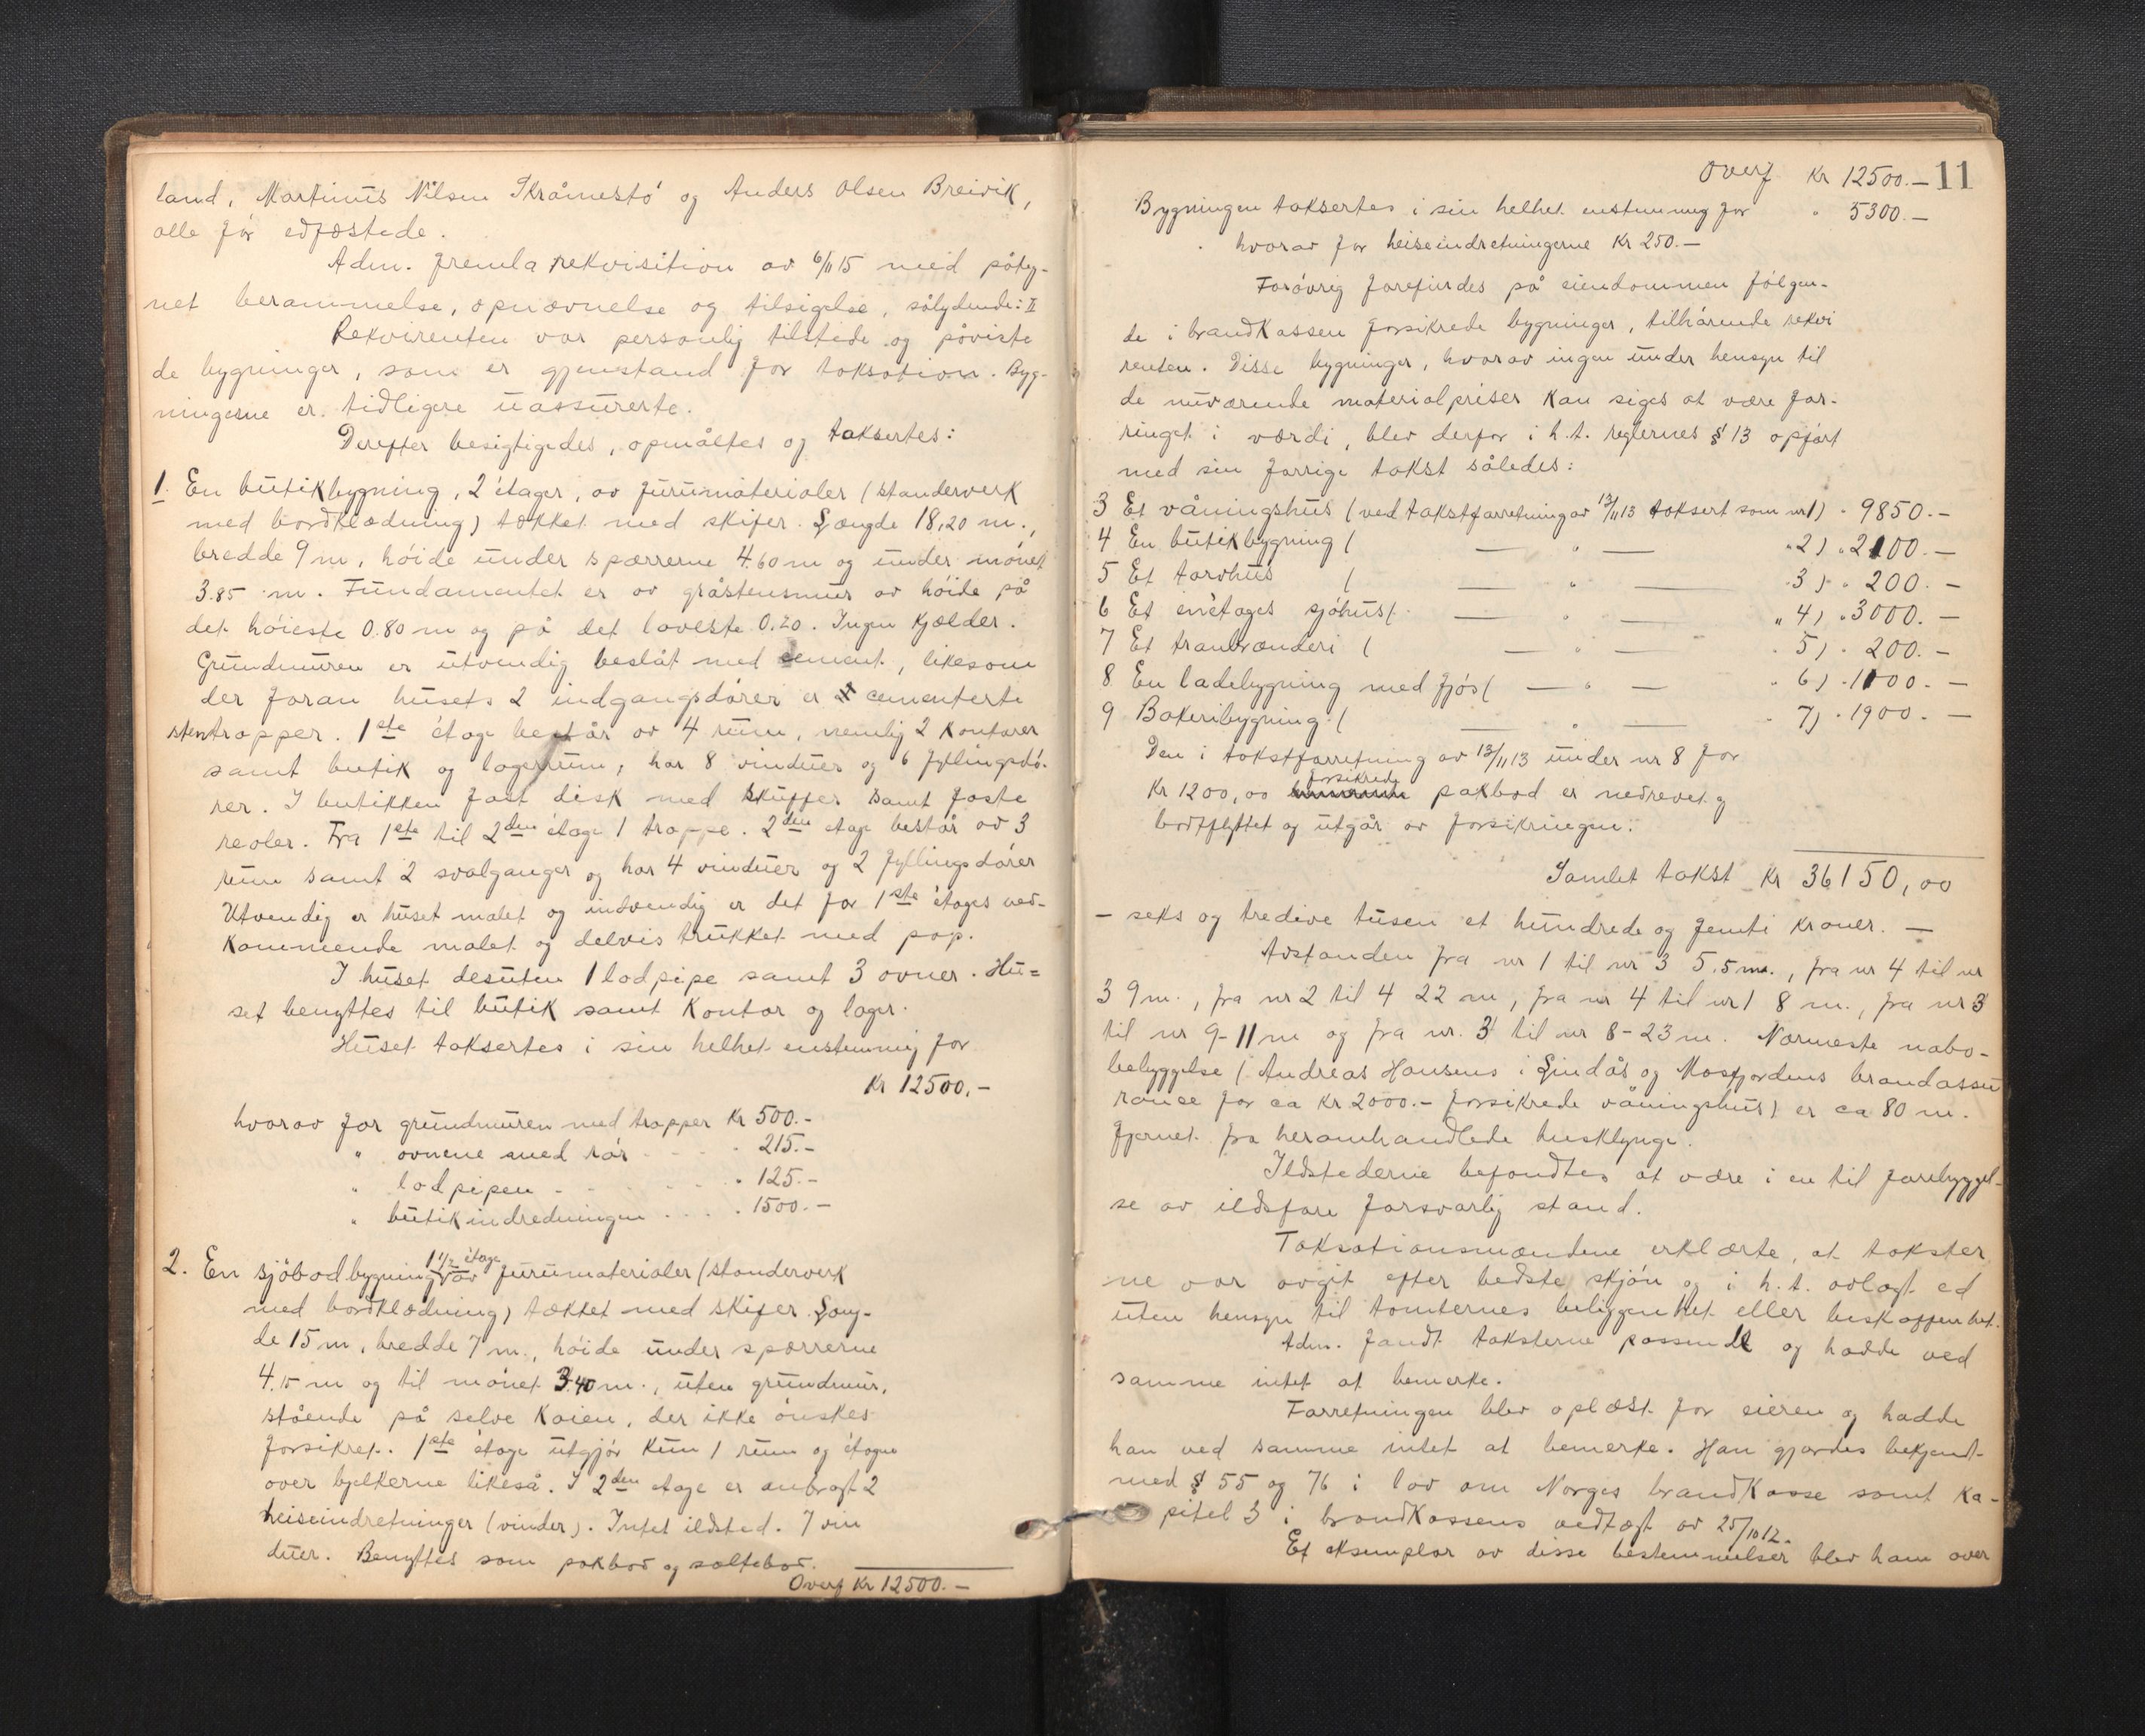 land, Martinus Nilsen Skråmestö og Anders Olsen Breivik,
alle för edfæstede.
Adm. fremla rekvisition av 6/11 15 med påteg-
net berammelse, opnævnelse og tilsigelse, sålydende: II
Rekvirenten var personlig tilstede og påviste
de bygninger, som er gjenstand for taksation. Byg-
ningerne er tidligere uassurerte.
Derefter besigtigedes, opmåltes og taksertes:
1. En butikbygning, 2 étager, av furumaterialer (standerverk
med bordklædning) tækket med skifer. Længde 18,20 m.,
bredde 9 m, höide under spærrerne 4.60 m og under mönet
3.85 m. Fundamentet er av gråstensmur av höide på
det höieste 0.80 m og på det laveste 0.20. Ingen kjælder.
Grundmuren er utvendig beslåt med cement, likesom
der foran husets 2 indgangsdörer er cementerte
stentrapper. 1ste étage består av 4 rum, nemlig 2 kontorer
samt butik og lagerrum, har 8 vinduer og 6 fyllingsdö-
rer. I butikken fast disk med skuffer samt faste
reoler. Fra 1ste til 2den étage 1 trappe. 2den etage består av 3
rum samt 2 svalganger og har 4 vinduer og 2 fyllingsdörer
Utvendig er huset malet og indvendig er det for 1ste étages ved-
kommende malet og delvis trukket med pap.
I huset desuten 1 lodpipe samt 3 ovner. Hu=
set benyttes til butik samt kontor og lager.
Huset taksertes i sin helhet enstemmig for
Kr 12500.-
hvorav for grundmuren med trapper Kr 500.-
" ovnene med rör . . . " 215.-
" lodpipen . . . . " 125.-
" butikindredningen . . . . 1500.-
2. En sjöbodbygning 1 1/2 étage av furumaterialer (standerverk
med bordklædning) tækket med skifer. Læng-
de 15 m, bredde 7 m., höide under spærrerne
4.15 m og til mönet 3.40 m., uten grundmur,
stående på selve kaien, der ikke önskes
forsikret. 1ste étage utgjör kun 1 rum og étagen
over bjelkerne likeså. I 2den etage er anbragt 2
heiseindretninger (vinder). Intet ildsted. 7 vin
duer. Benyttes som pakbod og saltebod.
Overf Kr 12500.-
Overf Kr 12500.- 11
Bygningen taksertes i sin helhet enstemmig for " 5300.-
hvorav for heiseindretningerne Kr 250.-
Forövrig forefindes på eiendommen fölgen-
de i brandkassen forsikrede bygninger, tilhörende rekvi
renten. Disse bygninger, hvorav ingen under hensyn til
de nuværende materialpriser kan siges at være for-
ringet i værdi, blev derfor i h.t. reglernes § 13 opfört
med sin forrige takst således:
3 Et våningshus (ved takstforretning av 13/11 13 taksert som nr 1) . 9850.-
4 En butikbygning ( — " — " 2) . 2100.-
5 Et torvhus ( — " — " 3) . 200.-
6 Et enétages sjöhus ( — " — " 4) . 3000.-
7 Et tranbrænderi ( — " — " 5) . 200.-
8 En ladebygning med fjös ( — " — " 6) . 1100.-
9 Bakeribygning ( — " — " 7) . 1900.-
Den i takstforretning av 13/11 13 under nr 8 for
Kr 1200,00 forsikrede pakbod er nedrevet og
bortflyttet og utgår av forsikringen.
Samlet takst Kr 36150,00
- seks og tredive tusen et hundrede og femti kroner. -
Avstanden fra nr 1 til nr 3 5.5 m., fra nr 4 til nr
3 9 m., fra nr 2 til 4 22 m, fra nr 4 til nr 1 8 m., fra nr 3
til nr 9 - 11 m og fra nr. 3 til nr 8 - 23 m. Nærmeste nabo-
bebyggelse (Andreas Hansens i Lindås og Masfjordens brandassu
rance for ca Kr 2000.- forsikrede våningshus) er ca 80 m.
fjernet fra heromhandlede husklynge.
Ildstederne befandtes at være i en til forebyggel-
se av ildsfare forsvarlig stand.
Taksationsmændene erklærte, at takster
ne var avgit efter bedste skjön og i h.t. avlagt ed
uten hensyn til tomternes beliggenhet eller beskaffenhet.
Adm. fandt taksterne passende og hadde ved
samme intet at bemerke.
Forretningen blev oplæst for eieren og hadde
han ved samme intet at bemerke. Han gjordes bekjendt
med § 55 og 76 i lov om Norges brandkasse samt ka-
pitel 3 i brandkassens vedtægt av 25/10 12.
Et eksemplar av disse bestemmelser blev ham over